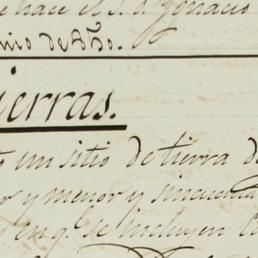 hace el S. D. Ignacio
nio de 820.
ierras.
un sitio de tierra de
r y menor y cincuenta
en q.e se incluyen